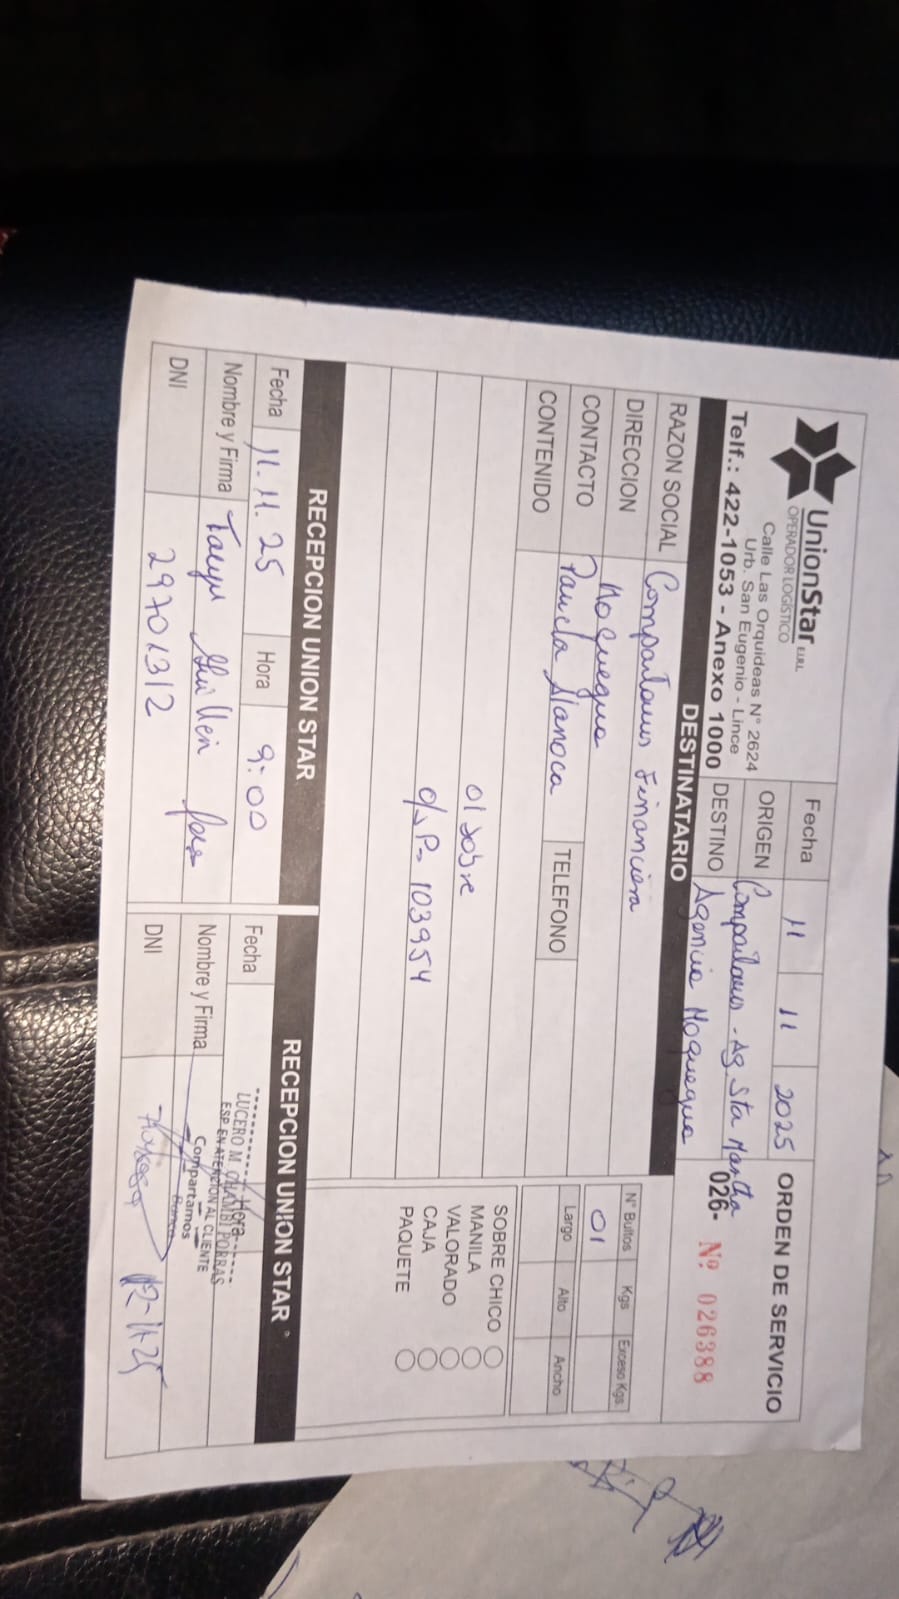 UnionStar E.I.R.L.
OPERADOR LOGÍSTICO
Calle Las Orquideas N° 2624
Urb. San Eugenio - Lince
Telf.: 422-1053 - Anexo 1000
Fecha 11 11 2025
ORIGEN Compartamos - Ag. Sta Martha
DESTINO Agencia Moquegua
ORDEN DE SERVICIO
026- Nº 026388
DESTINATARIO
RAZON SOCIAL Compartamos Financiera
DIRECCION Moquegua
CONTACTO Paucla TELEFONO
CONTENIDO
01 sobre
103954
N° Bultos Kgs Exceso Kgs.
01
Largo Alto Ancho
SOBRE CHICO
MANILA
VALORADO
CAJA
PAQUETE
RECEPCION UNION STAR
Fecha 11.11.25 Hora 9:00
Nombre y Firma
DNI 29701312
RECEPCION UNION STAR
Fecha Hora
LUCERO M. CHAMBI PORRAS
ESP. EN ATENCION AL CLIENTE
Compartamos
Banco
Nombre y Firma
DNI 12-11-25